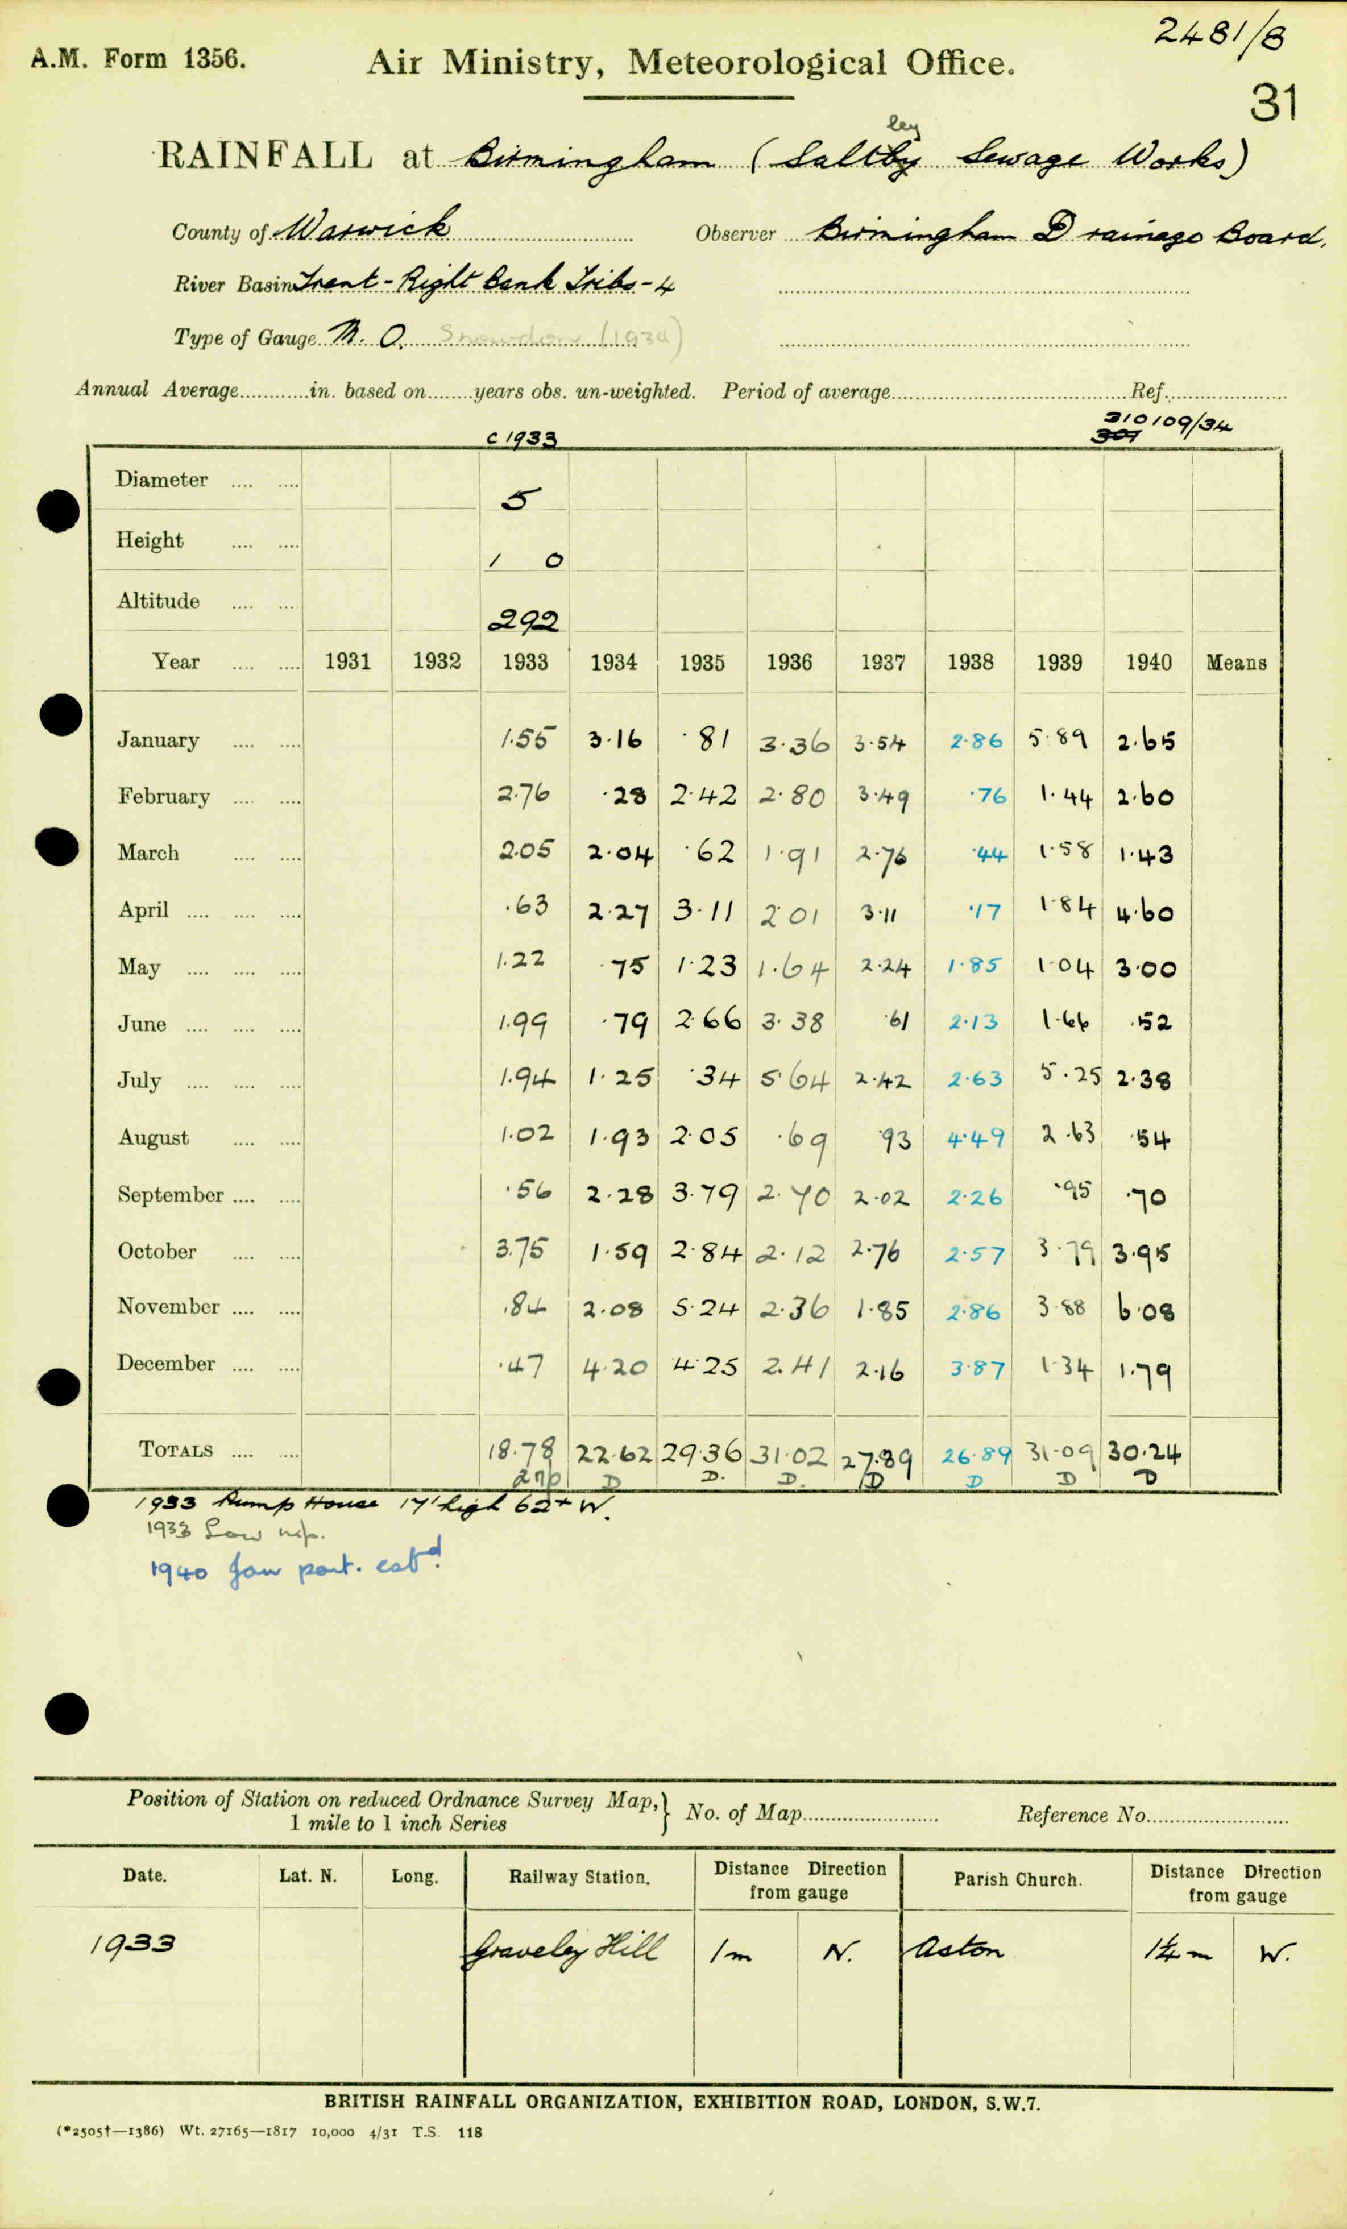 2481/8
A.M. Form 1356. Air Ministry, Meteorological Office.
31
ley
RAINFALL at Birmingham (Saltby Sewage Works)
County of Warwick Observer Birmingham Drainage Board.
River Basin Trent - Right Bank Tribs - 4
Type of Gauge M. O. Snowdon (1934)
Annual Average............in. based on........years obs. un-weighted. Period of average............ Ref.............
c 1933 310109/34
307
Diameter .... .... 5
Height .... .... 1 0
Altitude .... .... 292
Year .... .... 1931 1932 1933 1934 1935 1936 1937 1938 1939 1940 Means
January .... .... 1.55 3.16 .81 3.36 3.54 2.86 5.89 2.65
February .... .... 2.76 .28 2.42 2.80 3.49 .76 1.44 2.60
March .... .... 2.05 2.04 .62 1.91 2.76 .44 1.58 1.43
April .... .... .... .63 2.27 3.11 2.01 3.11 .17 1.84 4.60
May .... .... .... 1.22 .75 1.23 1.64 2.24 1.85 1.04 3.00
June .... .... .... 1.99 .79 2.66 3.38 .61 2.13 1.66 .52
July .... .... .... 1.94 1.25 .34 5.64 2.42 2.63 5.25 2.38
August .... .... 1.02 1.93 2.05 .69 .93 4.49 2.63 .54
September .... .... .56 2.28 3.79 2.70 2.02 2.26 .95 .70
October .... .... 3.75 1.59 2.84 2.12 2.76 2.57 3.79 3.95
November .... .... .84 2.08 5.24 2.36 1.85 2.86 3.88 6.08
December .... .... .47 4.20 4.25 2.41 2.16 3.87 1.34 1.79
TOTALS .... .... 18.78 22.62 29.36 31.02 27.89 26.89 31.09 30.24
D D. D. D D D D
1933 Pump House 17' high 62+ W.
1933 Low
1940 Jan part. estd.
Position of Station on reduced Ordnance Survey Map,} No. of Map............ Reference No............
1 mile to 1 inch Series
Date. Lat. N. Long. Railway Station. Distance Direction from gauge Parish Church. Distance Direction from gauge
1933 Graveley Hill 1m N. Aston 1¼ m W.
BRITISH RAINFALL ORGANIZATION, EXHIBITION ROAD, LONDON, S.W.7.
(*2505†—1386) Wt. 27165—1817 10,000 4/31 T.S. 118